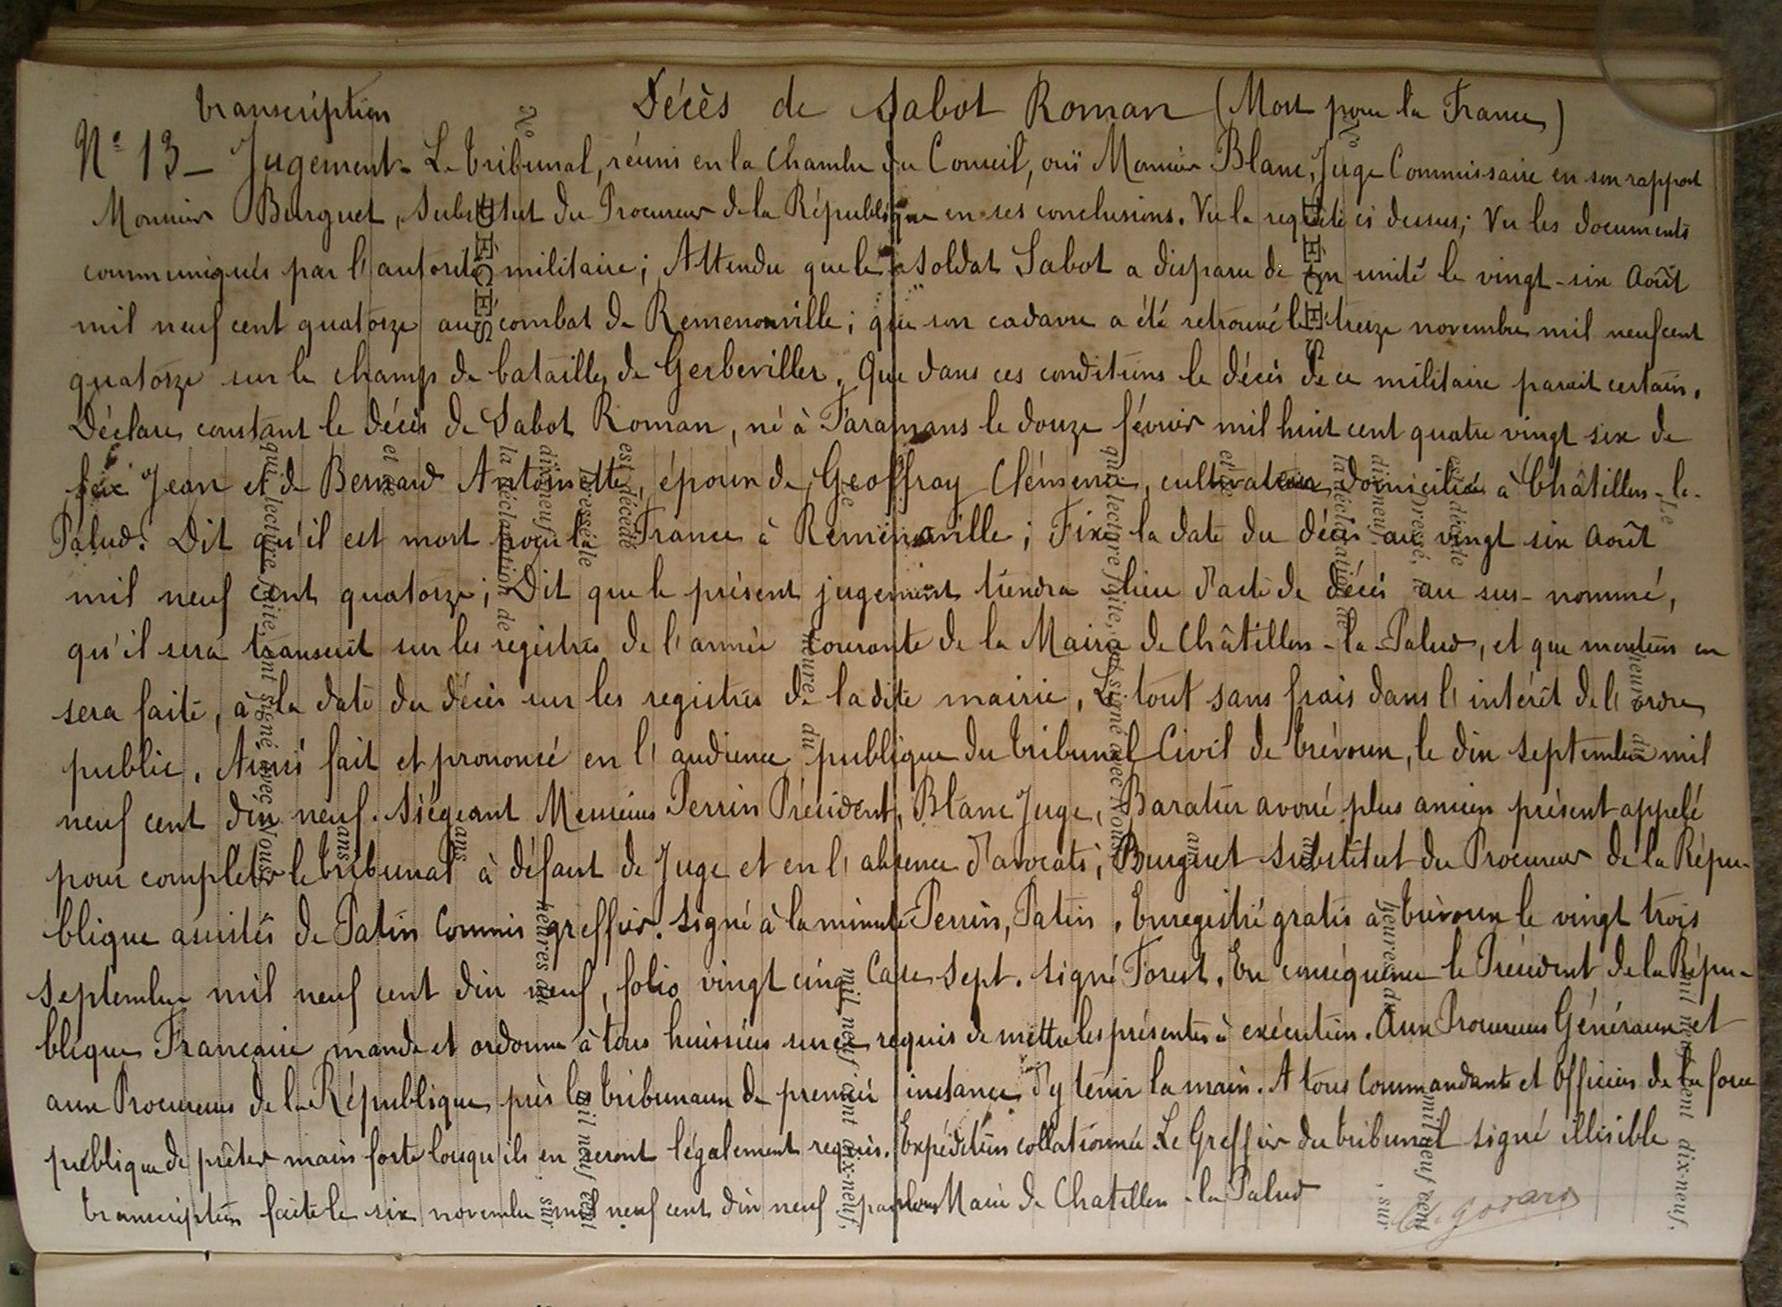 transcription Décès de Sabot Roman (Mort pour la France)
N° 13 - Jugement - Le tribunal, réuni en la chambre du Conseil, ouï Monsieur Blanc, Juge Commissaire en son rapport
Monsieur Burguet, substitut du Procureur de la République en ses conclusions. Vu la requête ci dessus; Vu les documents
communiqués par l'autorité militaire; Attendu que le soldat Sabot a disparu de son unité le vingt-six Août
mil neuf cent quatorze au combat de Remenonville; que son cadavre a été retrouvé le treize novembre mil neuf cent
quatorze sur le champ de bataille de Gerbeviller. Que dans ces conditions le décès de ce militaire parait certain.
Déclare constant le décès de Sabot Roman, né à Faramans le douze février mil huit cent quatre vingt six de
feu Jean et de Bernard Antoinette, époux de Geoffray Clémence, cultivateur domicilié à Châtillon-la-
Palud. Dit qu'il est mort pour la France à Remenonville; Fixe la date du décès au vingt six Août
mil neuf cent quatorze; Dit que le présent jugement tiendra lieu d'acte de décès au sus-nommé,
qu'il sera transcrit sur les registres de l'année courante de la Mairie de Châtillon-la-Palud, et que mention en
sera faite, à la date du décès sur les registres de ladite mairie, Le tout sans frais dans l'intérêt de l'ordre
public. Ainsi fait et prononcé en l'audience publique du tribunal Civil de trévoux, le dix septembre mil
neuf cent dix neuf. Siégeant Messieurs Perrin Président, Blanc Juge, Baratier avoué plus ancien présent appelé
pour compléter le tribunal à défaut de Juge et en l'absence d'avocats; Burguet substitut du Procureur de la Répu-
blique assistés de Patin Commis greffier. signé à la minute Perrin, Patin. Enregistré gratis à trévoux le vingt trois
septembre mil neuf cent dix neuf, folio vingt cinq Case sept. signé Forest. En conséquence le Président de la Répu-
blique Française mande et ordonne à tous huissiers sur ce requis de mettre les présentes à exécution. Aux Procureurs Généraux et
aux Procureurs de la République près les tribunaux de premier instance d'y tenir la main. A tous Commandants et Officiers de la force
publique de prêter main forte lorsqu'ils en seront légalement requis. Expédition collationnée Le Greffier du tribunal signé illisible
transcription faite le six novembre mil neuf cent dix neuf par nous Maire de Chatillon-la-Palud
N°
DÉCÈS
et de
la déclaration de
dix-neuf
Dressé le
est décédé
qui, lecture faite, ont signé avec Nous
ans
heures du
mil neuf cent
, sur
heure du
mil neuf cent dix-neuf,
N°
DÉCÈS
Le
est décédé
Dressé, le
dix-neuf
la déclaration de
et de
qui, lecture faite, ont signé avec Nous
ans
heures du
mil neuf cent
, sur
heure du
mil neuf cent dix-neuf,